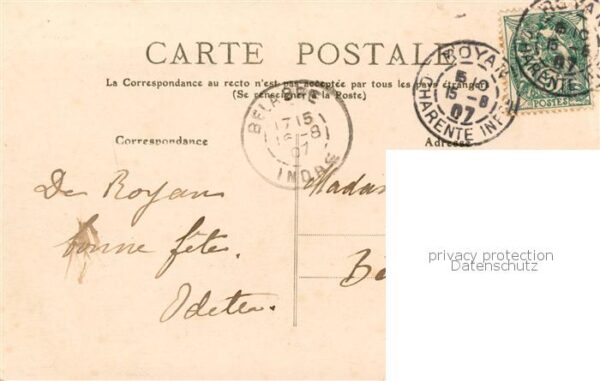 CARTE POSTALE
La Correspondance au recto n'est pas acceptée par tous les pays étrangers
(Se renseigner à la Poste)
ROYAN
5/0
15-8
07
CHARENTE INFRE
ROYAN
15
07
CHARENTE
POSTES
BELABRE
1715
16-8
07
INDRE
Correspondance
Adresse
De Royan
bonne fête.
Odette.
Madam
Bé
privacy protection
Datenschutz